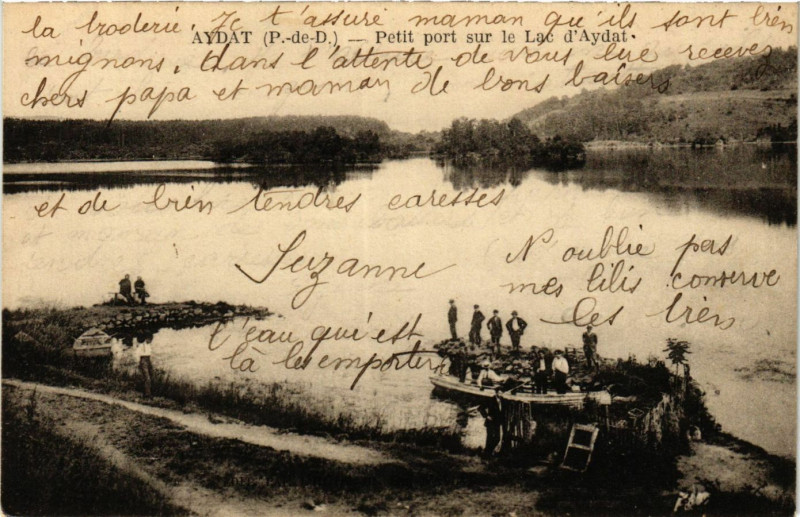 la broderie. Je t'assure maman qu'ils sont bien
AYDAT (P.-de-D.) — Petit port sur le Lac d'Aydat
mignons. dans l'attente de vous lire recevez
chers papa et maman de bons baisers
et de bien tendres caresses
Suzanne
N'oublie pas
mes lilis conserve
les bien
l'eau qui est
là les emportera